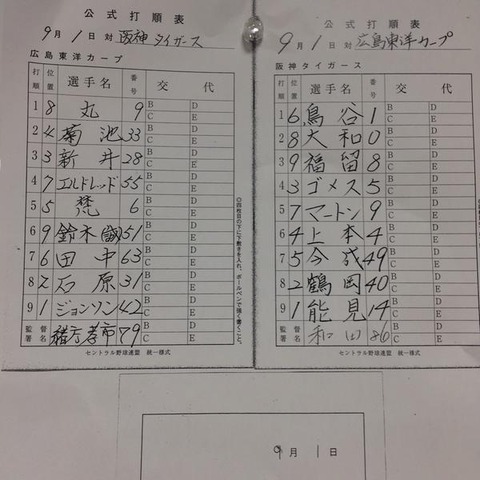 公式打順表
9月1日対阪神タイガース
広島東洋カープ
打順 位置 選手名 番号 交代
1 8 丸 9 B D C E
2 4 菊池 33 B D C E
3 3 新井 28 B D C E
4 7 エルドレッド 55 B D C E
5 5 梵 6 B D C E
6 9 鈴木誠 51 B D C E
7 6 田中 63 B D C E
8 2 石原 31 B D C E
9 1 ジョンソン 42 B D C E
監督署名 緒方孝市 79 B D C E
セントラル野球連盟 統一様式
◎四枚目の下に下敷きを入れ、ボールペンで強く書くこと。
公式打順表
9月1日対広島東洋カープ
阪神タイガース
打順 位置 選手名 番号 交代
1 6 鳥谷 1 B D C E
2 8 大和 0 B D C E
3 9 福留 8 B D C E
4 3 ゴメス 5 B D C E
5 7 マートン 9 B D C E
6 4 上本 4 B D C E
7 5 今成 49 B D C E
8 2 鶴岡 40 B D C E
9 1 能見 14 B D C E
監督署名 和田 86 B D C E
セントラル野球連盟 統一様式
9月1日